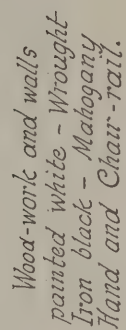 Wood-work and walls
painted white - Wrought
Iron black - Mahogany
Hand and Chair-rail.